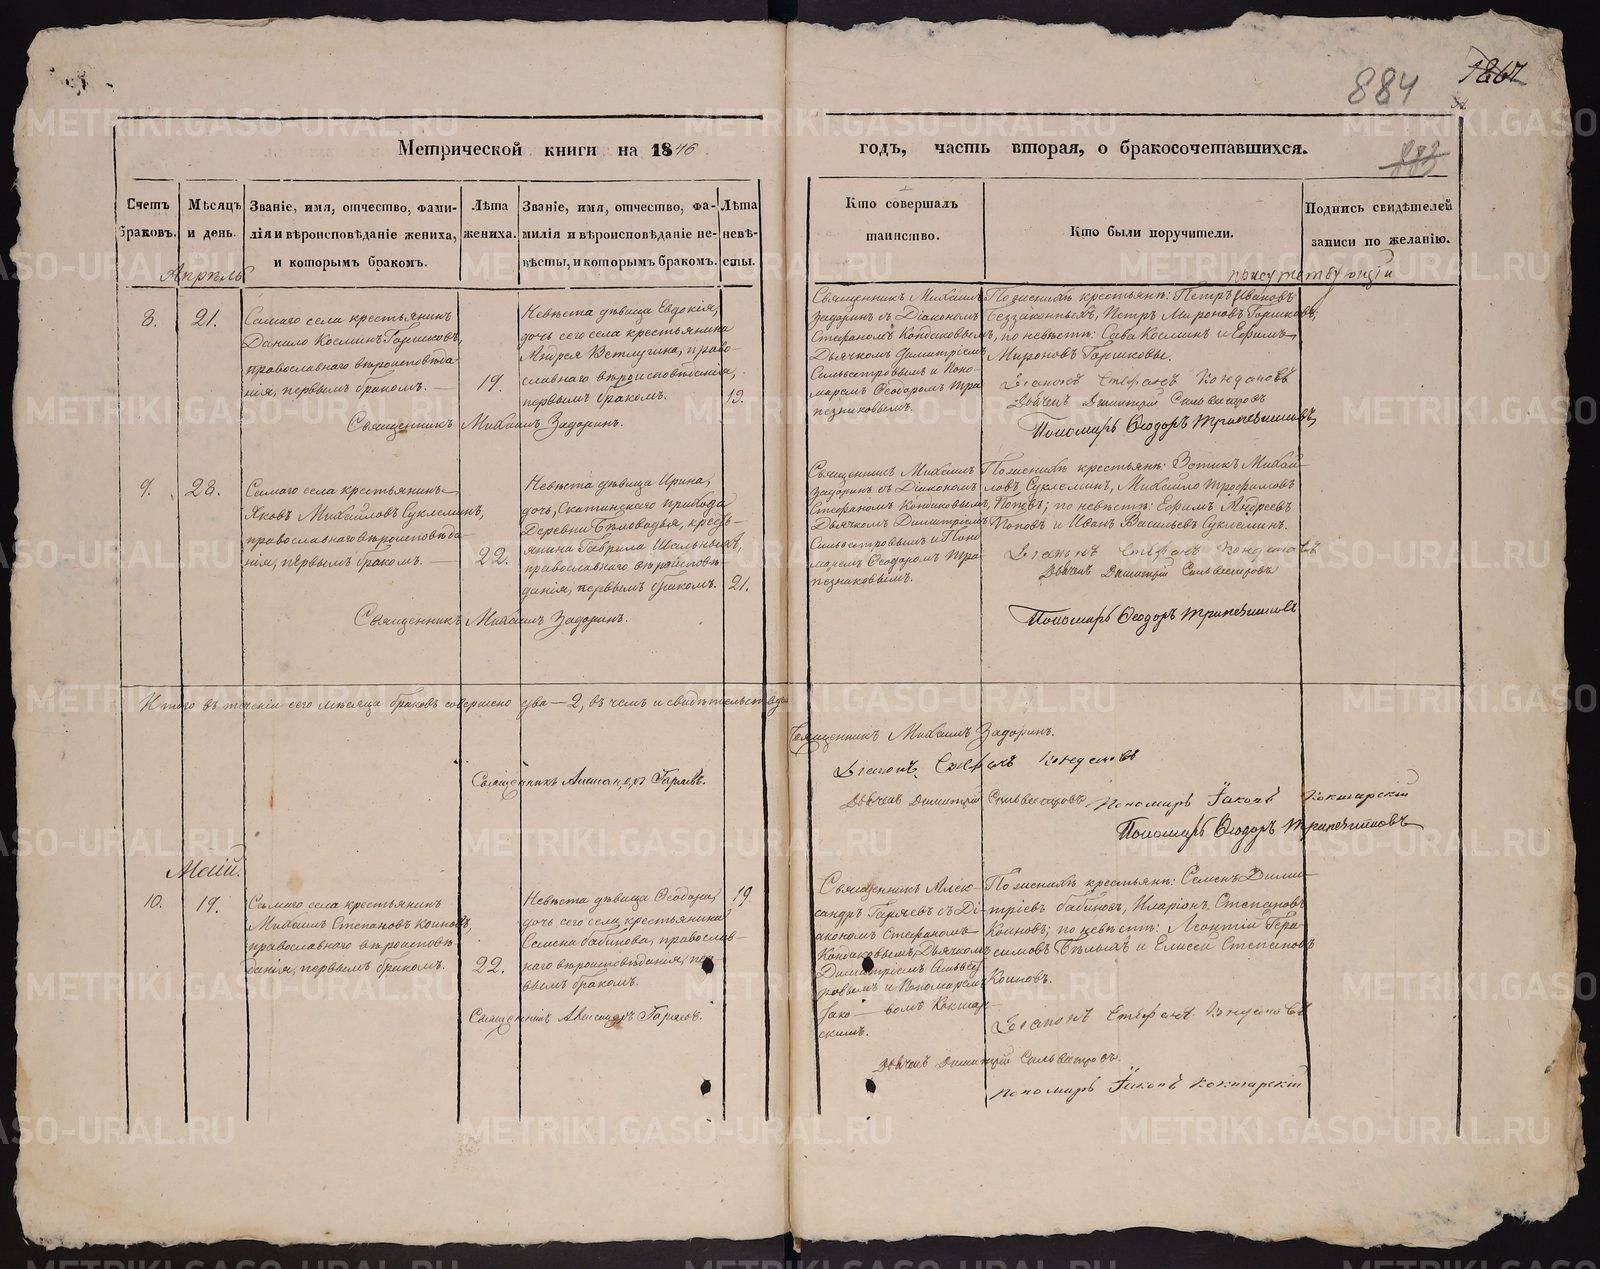 884
1867
Метрической книги на 1846
годъ, часть вторая, о бракосочетавшихся.
Счетъ браковъ.
Мѣсяцъ и день.
Званіе, имя, отчество, фами-
лія и вѣроисповѣданіе жениха,
и которымъ бракомъ.
Лѣта
жениха.
Званіе, имя, отчество, фа-
милія и вѣроисповѣданіе не-
вѣсты, и которымъ бракомъ.
Лѣта
невѣ-
сты.
Кто совершалъ
таинство.
Кто были поручители.
Подпись свидѣтелей
записи по желанію.
Апрѣль
8.
21.
Самаго села крестьянинъ
Данило Косминъ Горшковъ,
православнаго вѣроисповѣда-
нія, первымъ бракомъ. —
19.
Невѣста дѣвица Евдокія,
дочь сего села крестьянина
Андрея Ветлугина, право-
славнаго вѣроисповѣданія,
первымъ бракомъ.
19.
Священникъ Михаилъ
Задоринъ съ Діакономъ
Стефаномъ Кондаковымъ,
Дьячкомъ Димитріемъ
Сильвестровымъ и Поно-
маремъ Ѳеодоромъ Тра-
пезниковымъ.
По женихѣ крестьяне: Петръ Ивановъ
Беззаконныхъ, Петръ Мироновъ Горшковъ;
по невѣстѣ: Сава Косминъ и Ефимъ
Мироновъ Горшковы.
Діаконъ Стефанъ Кондаковъ
Дьячекъ Димитрій Сильвестровъ
Пономарь Ѳеодоръ Трапезниковъ
Священникъ Михаилъ Задоринъ.
9.
28.
Самаго села крестьянинъ
Яковъ Михайловъ Суклеминъ,
православнаго вѣроисповѣда-
нія, первымъ бракомъ. —
22.
Невѣста дѣвица Ирина,
дочь, Скатинскаго прихода
Деревни Бѣловодья, кресть-
янина Гаврила Шальныхъ,
православнаго вѣроисповѣ-
данія, первымъ бракомъ.
21.
Священникъ Михаилъ
Задоринъ съ Діакономъ
Стефаномъ Кондаковымъ,
Дьячкомъ Димитріемъ
Сильвестровымъ и Поно-
маремъ Ѳеодоромъ Тра-
пезниковымъ.
По женихѣ крестьяне: Зотикъ Михай-
ловъ Суклеминъ, Михайло Трофимовъ
Поповъ; по невѣстѣ: Ефимъ Андреевъ
Поповъ и Иванъ Васильевъ Суклеминъ.
Діаконъ Стефанъ Кондаковъ
Дьячекъ Димитрій Сильвестровъ
Пономарь Ѳеодоръ Трапезниковъ
Священникъ Михаилъ Задоринъ.
Итого въ теченіи сего мѣсяца браковъ совершено два — 2, въ чемъ и свидѣтельствуемъ
Священникъ Михаилъ Задоринъ.
Діаконъ Стефанъ Кондаковъ
Священникъ Александръ Гаряевъ.
Дьячекъ Димитрій Сильвестровъ Пономарь Іаковъ Кокшарскій
Пономарь Ѳеодоръ Трапезниковъ
Маій.
10.
19.
Самаго села крестьянинъ
Михаилъ Степановъ Коиновъ,
православнаго вѣроисповѣ-
данія, первымъ бракомъ.
22.
Невѣста дѣвица Ѳеодора,
дочь сего села крестьянина
Семена Бабинова, православ-
наго вѣроисповѣданія, пер-
вымъ бракомъ.
19.
Священникъ Алек-
сандръ Гаряевъ съ Ді-
акономъ Стефаномъ
Кондаковымъ, Дьячкомъ
Димитріемъ Сильвест
ровымъ и Пономаремъ
Іако — вомъ Кокшар-
скимъ.
По женихѣ крестьяне: Семенъ Дими-
тріевъ Бабиновъ, Иларіонъ Степановъ
Коиновъ; по невѣстѣ: Леонтій Гера-
симовъ Бѣлыхъ и Елисей Степановъ
Коиновъ.
Діаконъ Стефанъ Кондаковъ
Священникъ Александръ Гаряевъ.
Дьячекъ Димитрій Сильвестровъ.
Пономарь Іаковъ Кокшарскій
METRIKI.GASO-URAL.RU